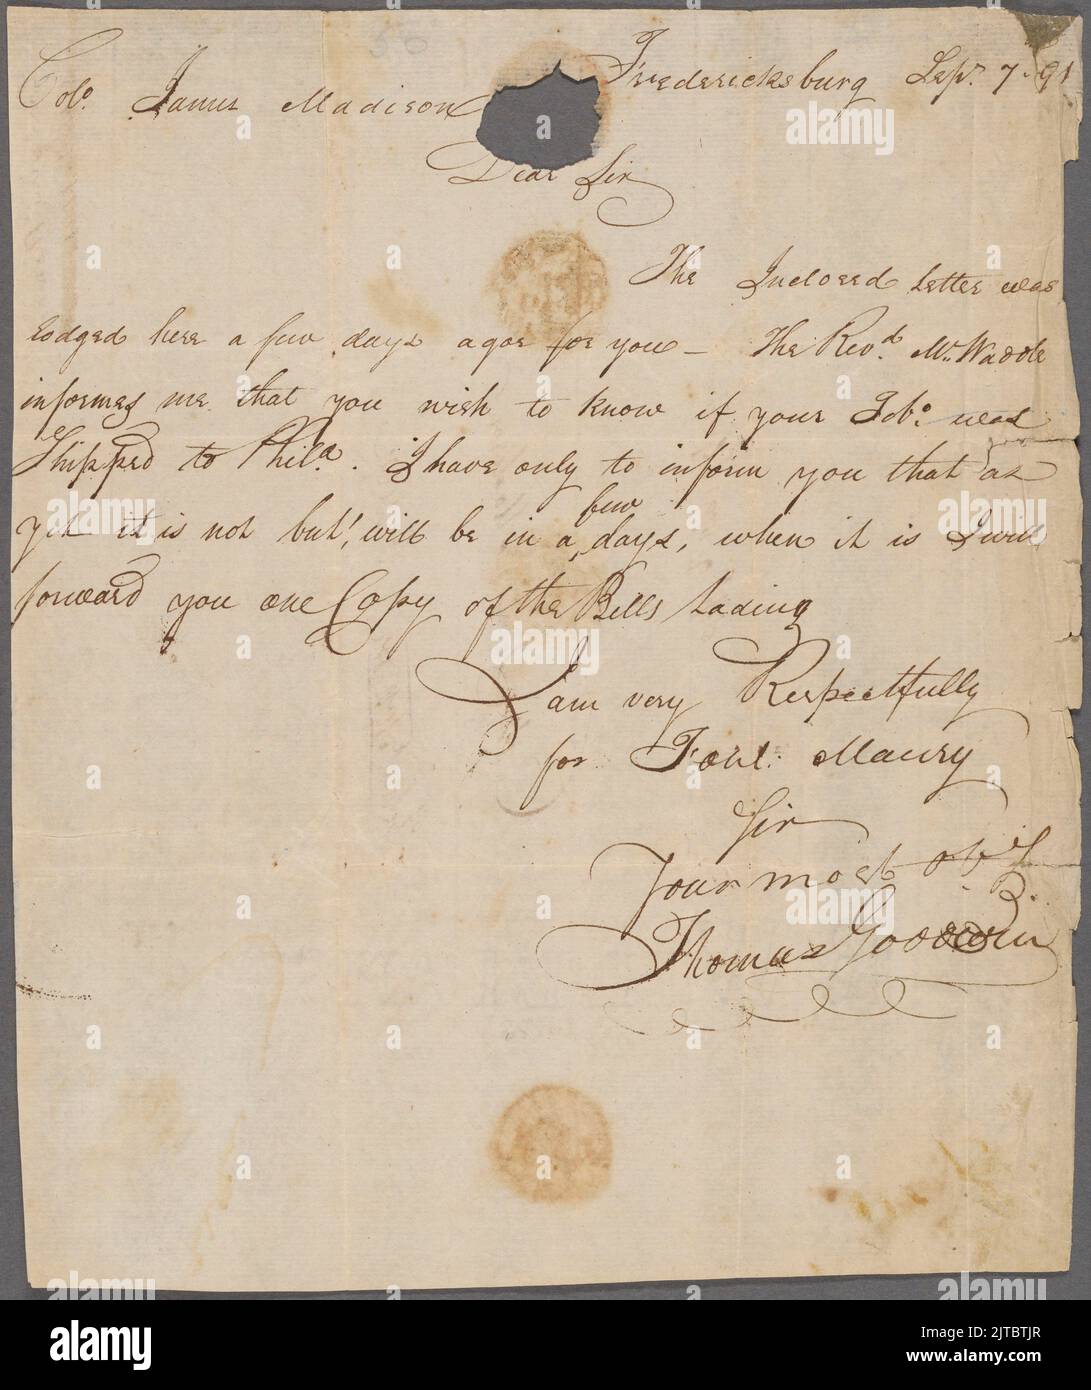 Fredericksburg Sepr. 7. 91
Colo. James Madison
Dear Sir
The Inclosed Letter was
lodged here a few days agoe for you — The Revd. Mr. Waddle
informes me that you wish to know if your Tobo. was
Shipped to Phila. I have only to inform you that as
few
yet it is not but will be in a ‸ days, when it is I will
forward you one Copy of the Bills Lading
I am very Respectfully
for Font. Maury
Sir
Your most obt.
Thomas Goodwin
alamy
Image ID: 2JTBTJR
www.alamy.com